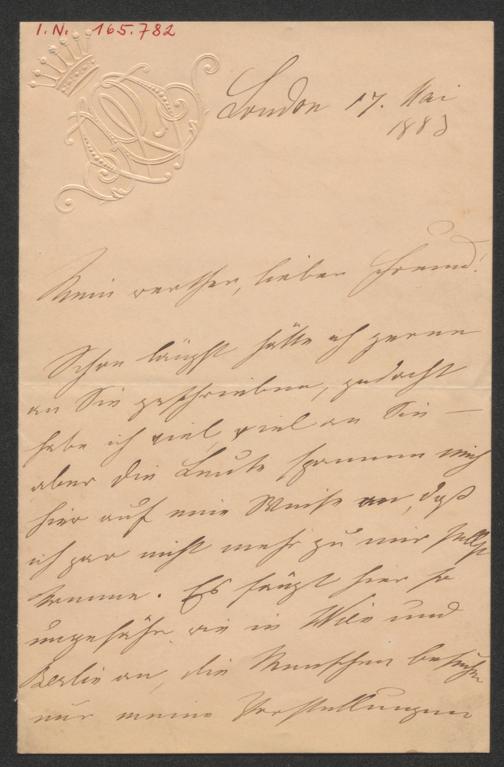 I.N. 165.782
London 17. Mai
1883
Mein werther, lieber Freund!
Schon längst hätte ich gerne
an Sie geschrieben, gedacht
habe ich viel, viel an Sie —
aber die Leute spannen mich
hier auf eine Weise an, daß
ich gar nicht mehr zu mir selbst
komme. Es fängt hier so
ungefähr wie in Wien und
Berlin an, die Menschen besuchen
nur meine Vorstellungen